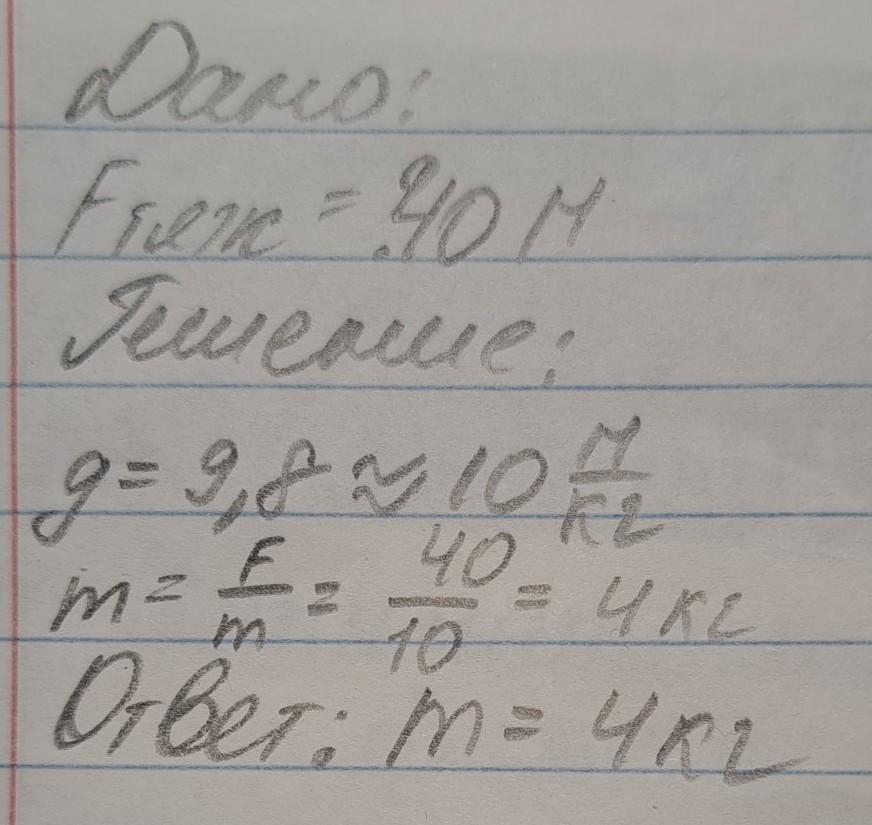 Дано:
Fтяж = 40 Н
Решение:
g = 9,8 ≈ 10 Н/кг
m = F/m = 40/10 = 4 кг
Ответ: m = 4 кг